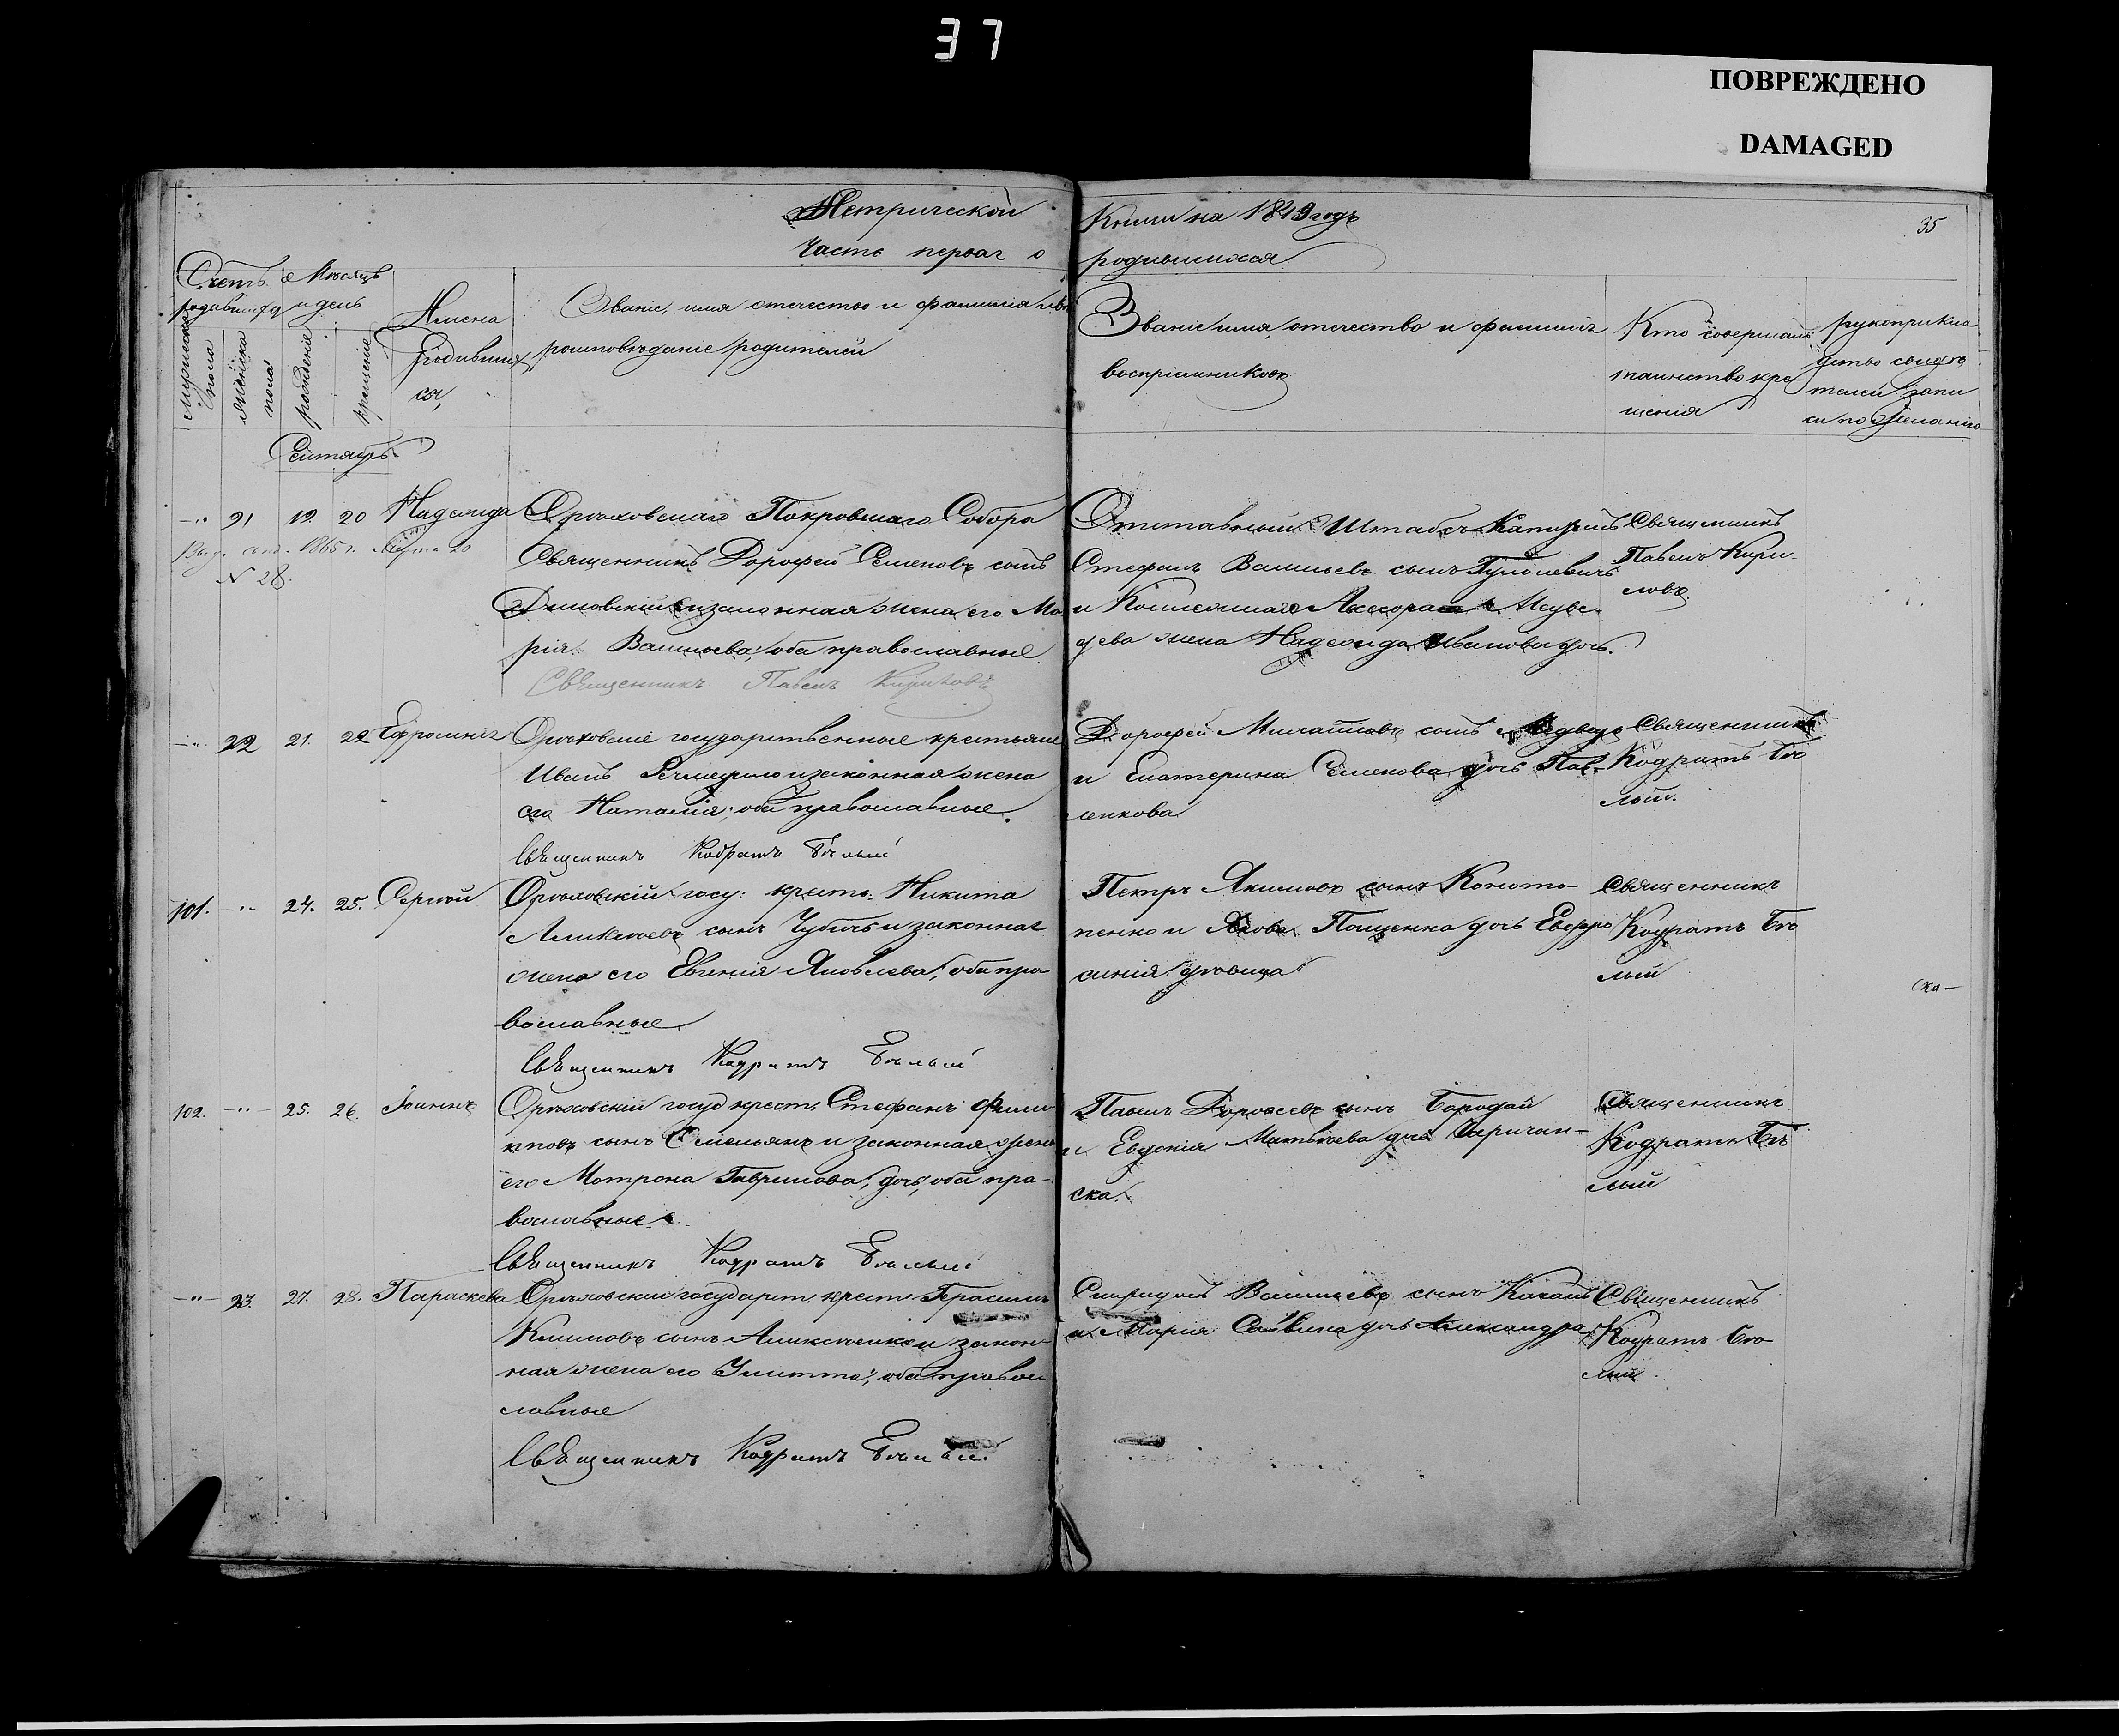 37
ПОВРЕЖДЕНО
DAMAGED
Метрической
Книги на 1849 годъ
35
Часть первая о
родившихся
Счетъ родившихся
Мужеска пола
Женска пола
Месяцъ и день
рожденія
крещенія
Имена
родивших
ся,
Званіе, имя отечество и фамилія
роисповеданіе родителей
Званіе имя, отечество и фамилія
воспріемниковъ
Кто совершалъ
таинство кре
щенія
рукоприкла
дство свидѣ
телей запи
си по желанію
Сентябрь
-"- 91 19. 20 Надежда
1865 г.
N 28.
Орѣховскаго Покровскаго Собора
Священникъ Дорофей Семеновъ сынъ
и законная жена его Ма
рія Васильева; оба православные
Священникъ Павелъ Кириловъ
Отставный Штабсъ Капитанъ
Стефанъ Васильевъ сынъ
и Коллежскаго Ассесора
жена Надежда Иванова дочь.
Священникъ
Павелъ Кири-
ловъ.
-"- 22 21. 22 Ефросинія
Орѣховскіе государственные крестьяне
Иванъ и законная жена
его Наталія; оба православные.
Священникъ Кодратъ Бѣлый
Дорофей сынъ
и Екатерина Семенова дочь Пав-
ленкова
Священникъ
Кодратъ Бѣ
лый.
101. -"- 24. 25. Сергій
Орѣховскій госу: крестъ. Никита
Алексѣевъ сынъ и законная
жена его Евгенія Яковлева; оба пра
вославные
Священникъ Кодратъ Бѣлый
Петръ Якимовъ сынъ Коното-
пенко и Пащенка дочь Евфро
синія дѣвица
Священникъ
Кодратъ Бѣ
лый
102. -"- 25. 26. Іоаннъ
Орѣховскій госуд крест. Стефанъ Фили
повъ сынъ Емельянъ и законная жена
его Мотрона Гаврилова, дочь; оба пра-
вославные
Священникъ Кодратъ Бѣлый
Павелъ сынъ Бородай
и Евдокія Матвѣева дочь
ска.
Священникъ
Кодратъ Бѣ
лый
-"- 23. 27. 28. Параскева
Орѣховскій государст. крест. Герасимъ
Климовъ сынъ и закон
ная жена его Улитта; оба право
славные
Священникъ Кодратъ Бѣлый
Спиридонъ Васильевъ сынъ Качанъ
и Марія Саввина дочь Александра
Священникъ
Кодратъ Бѣ
лый